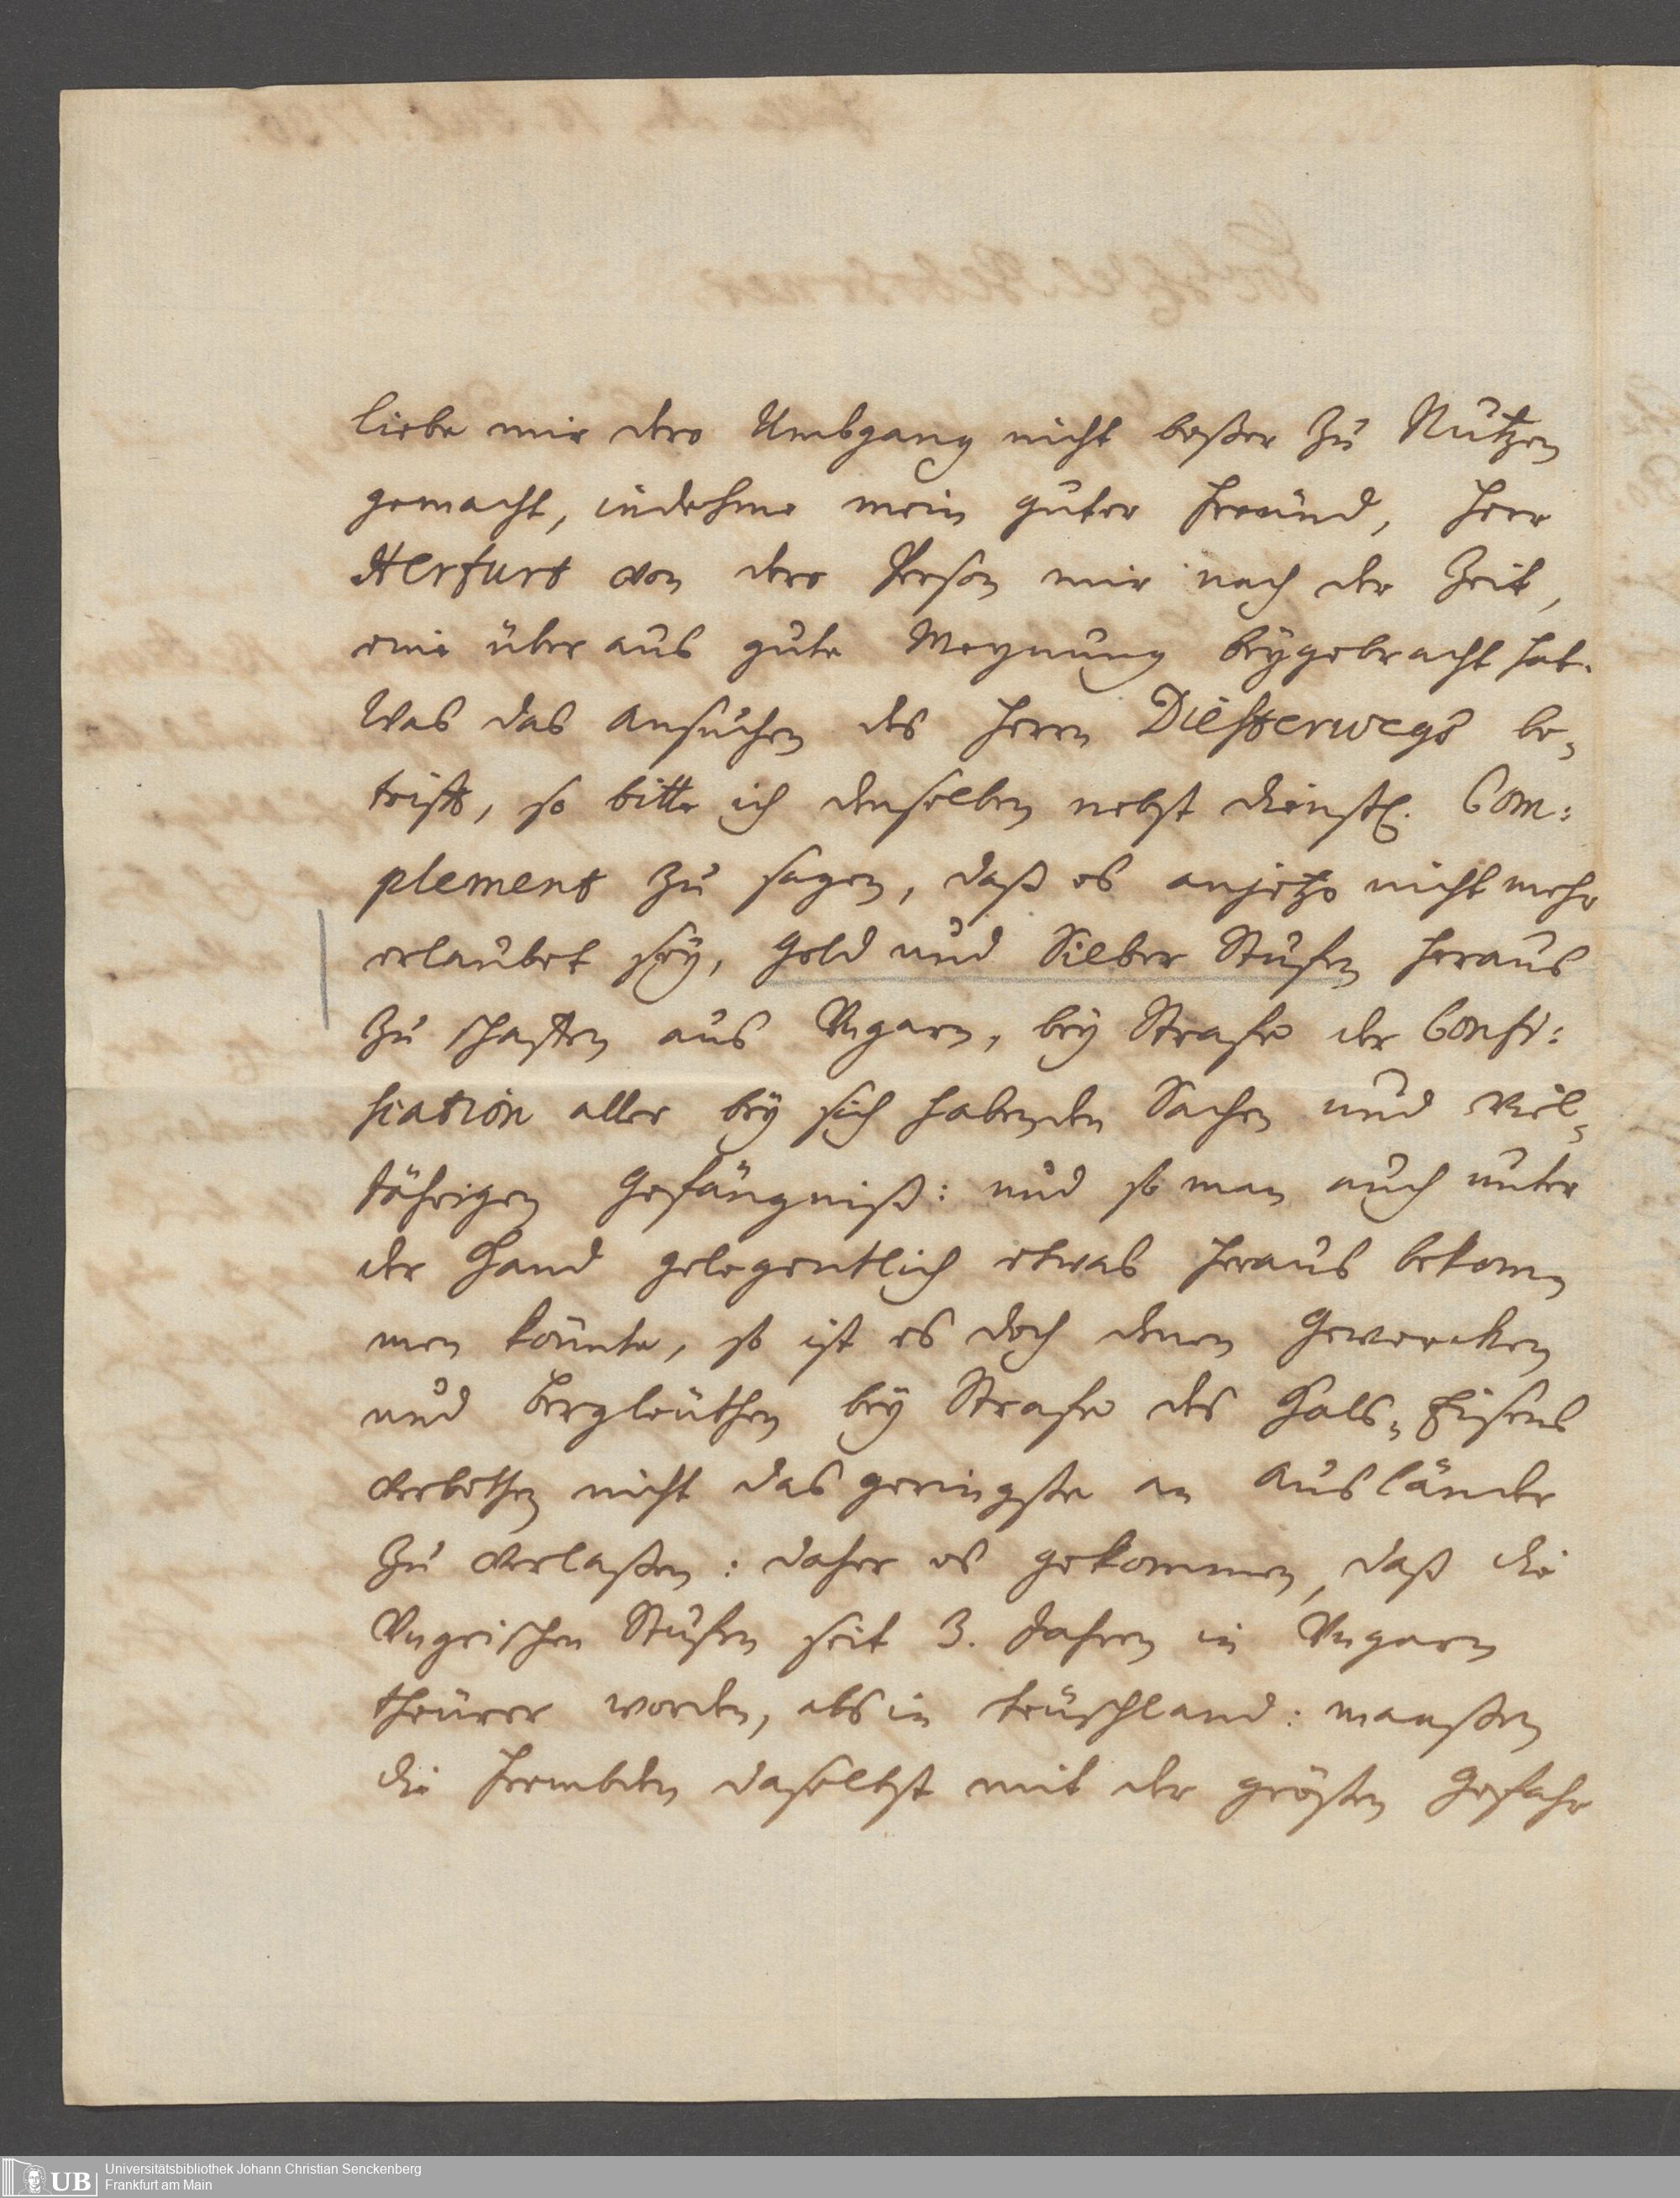 liebe mir dero Umbgang nicht beßer zu Nutzen
gemacht, indehme mein guter Freund, Herr
Herfurt von dero Person mir nach der Zeit,
eine über aus gute Meynung beygebracht hat.
Was das Ansuchen des Herrn Diesterwegs be-
trifft, so bitte ich denselben nebst dienstl. Com:
plement zu sagen, daß es anjetzo nicht mehr
erlaubet sey, Gold und Silber Stufen heraus
zu schaffen aus Ungarn, bey Strafe der Confi:
sication aller bey sich habenden Sachen und viel-
jährigen Gefängniß: und so man auch unter
der Hand gelegentlich etwas heraus bekom-
men könnte, so ist es doch denen Gewercken
und Bergleuthen bey Strafe des Hals-Eisens
verbothen nicht das geringste an Ausländer
zu verlaßen: daher es gekommen, daß die
Ungrischen Stufen seit 3. Jahren in Ungarn
theurer worden, als in Teuschland: maaßen
die Frembden daselbst mit der größten Gefahr
UB
Universitätsbibliothek Johann Christian Senckenberg
Frankfurt am Main